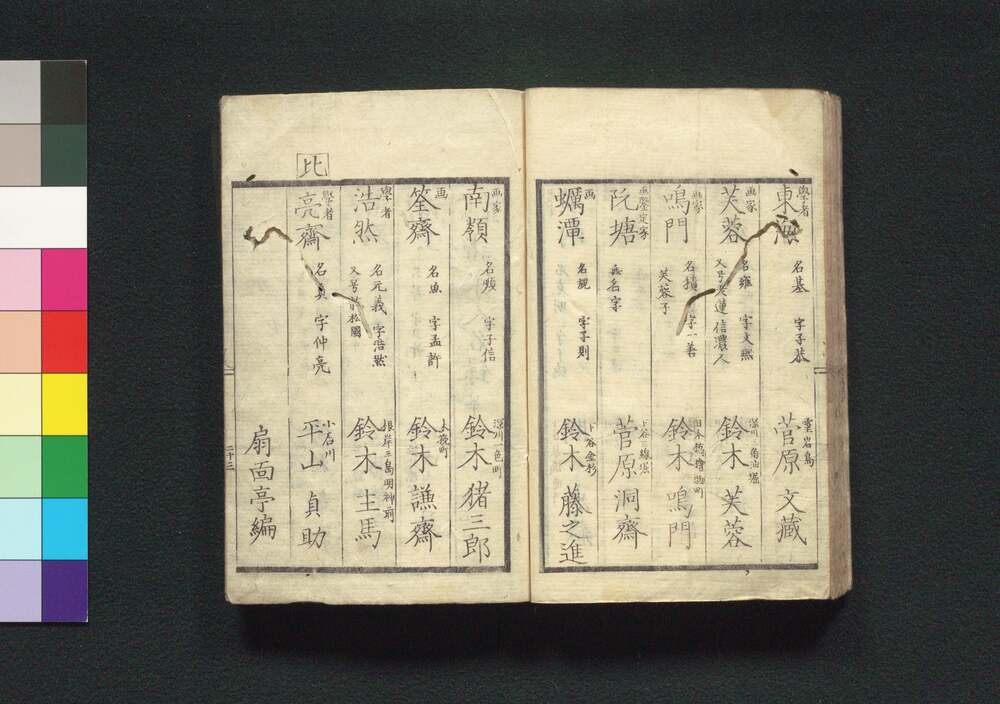 學者 東海 名基 字子恭 霊岩島 菅原文藏
画家 芙蓉 名雍 字文煕 又号老蓮 信濃人 深川角油堀 鈴木芙蓉
画家 鳴門 名積 字一善 芙蓉子 日本橋檜物町 鈴木鳴門
画鑒定家 阮塘 無名字 下谷線堀 菅原洞齋
画 蠣潭 名覩 字子則 下谷金杉 鈴木藤之進
画家 南嶺 名順 字子信 深川一色町 鈴木猪三郎
画 筌齋 名魚 字孟許 大夜町 鈴木謙齋
學者 浩然 名元義 字浩然 又号 松園 根岸三島明神前 鈴木主馬
比
學者 亮齋 名貞 字仲亮 小石川 平山貞助
扇面亭編
二十三